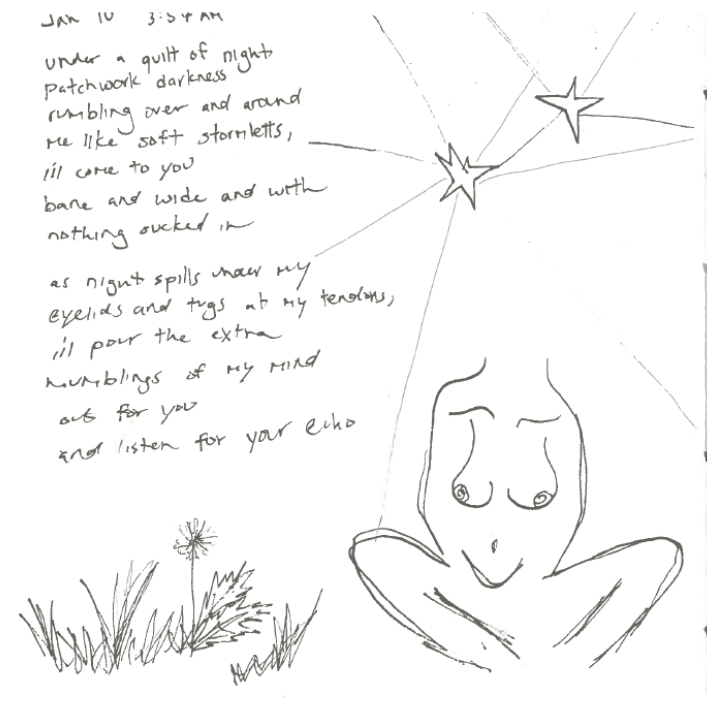 Jan 10 3:54 AM
under a quilt of night
patchwork darkness
rumbling over and around
me like soft stormletts,
i'll come to you
bare and wide and with
nothing sucked in
as night spills under my
eyelids and tugs at my tendons,
i'll pour the extra
mumblings of my mind
out for you
and listen for your echo